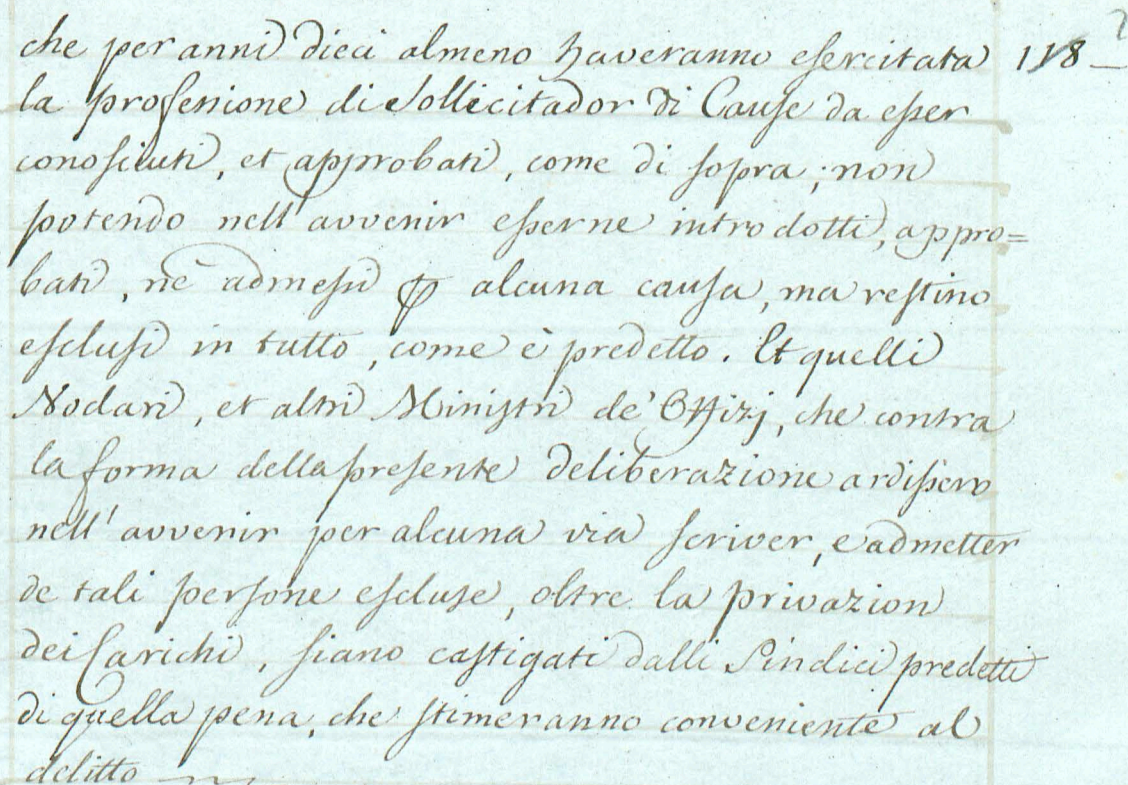 che per anni dieci almeno haveranno esercitata 118
la professione di Sollecitador di Cause da esser
conosciuti, et approbati, come di sopra; non
potendo nell'avvenir esserne introdotti, appro=
bati, nè admessi ꝑ alcuna causa, ma restino
esclusi in tutto, come è predetto. Et quelli
Nodari, et altri Ministri de' Offizj, che contra
la forma della presente deliberazione ardissero
nell'avvenir per alcuna via scriver, e admetter
de tali persone escluse, oltre la privazion
dei Carichi, siano castigati dalli Sindici predetti
di quella pena, che stimeranno conveniente al
delitto